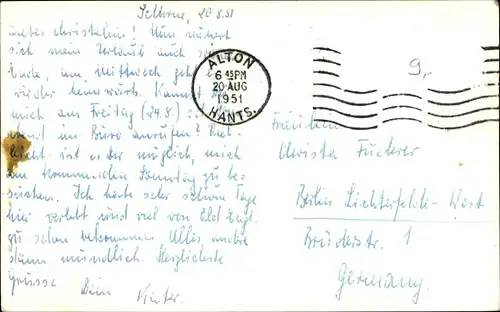 Selborne, 20.8.51
Liebe Christelein! Nun nähert
sich mein Urlaub auch sein
Ende, am Mittwoch geht es
wieder heimwärts. Kannst
mich am Freitag (24.8.)
im Büro anrufen? Viel-
leicht ist es dir möglich, mich
am kommenden Sonntag zu be-
suchen. Ich habe sehr schöne Tage
hier verlebt und viel von Old Engl.
zu sehen bekommen. Alles andere
dann mündlich. Herzlichste
Grüsse
Dein
ALTON
6 45PM
20 AUG
1951
HANTS.
9,-
Fräulein
Christa Fuderer
Berlin Lichterfelde-West
1
Germany.